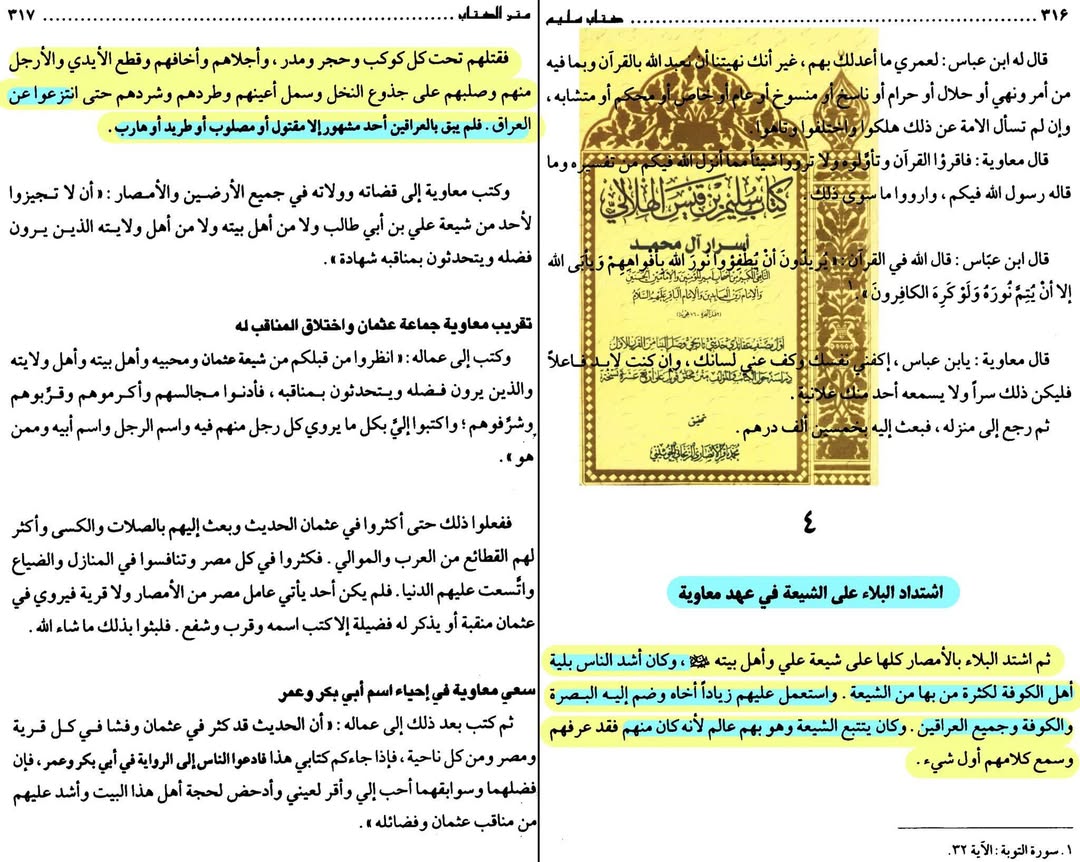 ٣١٦ ........ كتاب سليم
قال له ابن عباس : لعمري ما أعدلك بهم ، غير أنك نهيتنا أن نعبد الله بالقرآن وبما فيه
من أمر ونهي أو حلال أو حرام أو ناسخ أو منسوخ أو عام أو خاص أو محكم أو متشابه ،
وإن لم تسأل الامة عن ذلك هلكوا واختلفوا وتاهوا .
قال معاوية : فاقرؤا القرآن وتأوّلوه ولا ترووا شيئاً مما أنزل الله فيكم من تفسيره وما
قاله رسول الله فيكم ، وارووا ما سوى ذلك
قال ابن عبّاس : قال الله في القرآن : « يُريدُونَ أنْ يُطْفِؤُوا نُورَ اللهِ بِأفْواهِهِمْ وَيَأبَى اللهُ
إلا أنْ يُتِمَّ نُورَهُ وَلَوْ كَرِهَ الكافِرونَ » ١.
قال معاوية : يابن عباس ، إكفني نفسك وكف عني لسانك ، وإن كنت لابد فاعلاً
فليكن ذلك سراً ولا يسمعه أحد منك علانية .
ثم رجع إلى منزله ، فبعث إليه بخمسين ألف درهم .
كتاب سليم بن قيس الهلالي
أسرار آل محمد
تحقيق
محمد باقر الأنصاري الزنجاني الخوئيني
٤
اشتداد البلاء على الشيعة في عهد معاوية
ثم اشتد البلاء بالأمصار كلها على شيعة علي وأهل بيته ، وكان أشد الناس بلية
أهل الكوفة لكثرة من بها من الشيعة . واستعمل عليهم زياداً أخاه وضم إليه البصرة
والكوفة وجميع العراقين . وكان يتتبع الشيعة وهو بهم عالم لأنه كان منهم فقد عرفهم
وسمع كلامهم أول شيء .
١ . سورة التوبة : الآية ٣٢.
متن الكتاب ........ ٣١٧
فقتلهم تحت كل كوكب وحجر ومدر ، وأجلاهم وأخافهم وقطع الأيدي والأرجل
منهم وصلبهم على جذوع النخل وسمل أعينهم وطردهم وشردهم حتى انتزعوا عن
العراق . فلم يبق بالعراقين أحد مشهور إلا مقتول أو مصلوب أو طريد أو هارب .
وكتب معاوية إلى قضاته وولاته في جميع الأرضين والأمصار : « أن لا تجيزوا
لأحد من شيعة علي بن أبي طالب ولا من أهل بيته ولا من أهل ولايته الذين يرون
فضله ويتحدثون بمناقبه شهادة » .
تقريب معاوية جماعة عثمان واختلاق المناقب له
وكتب إلى عماله : « انظروا من قبلكم من شيعة عثمان ومحبيه وأهل بيته وأهل ولايته
والذين يرون فضله ويتحدثون بمناقبه ، فأدنوا مجالسهم وأكرموهم وقرّبوهم
وشرّفوهم ؛ واكتبوا إليّ بكل ما يروي كل رجل منهم فيه واسم الرجل واسم أبيه وممن
هو » .
ففعلوا ذلك حتى أكثروا في عثمان الحديث وبعث إليهم بالصلات والكسى وأكثر
لهم القطائع من العرب والموالي . فكثروا في كل مصر وتنافسوا في المنازل والضياع
واتّسعت عليهم الدنيا . فلم يكن أحد يأتي عامل مصر من الأمصار ولا قرية فيروي في
عثمان منقبة أو يذكر له فضيلة إلا كتب اسمه وقرب وشفع . فلبثوا بذلك ما شاء الله .
سعي معاوية في إحياء اسم أبي بكر وعمر
ثم كتب بعد ذلك إلى عماله : « أن الحديث قد كثر في عثمان وفشا في كل قرية
ومصر ومن كل ناحية ، فإذا جاءكم كتابي هذا فادعوا الناس إلى الرواية في أبي بكر وعمر ، فإن
فضلهما وسوابقهما أحب إلي وأقر لعيني وأدحض لحجة أهل هذا البيت وأشد عليهم
من مناقب عثمان وفضائله » .